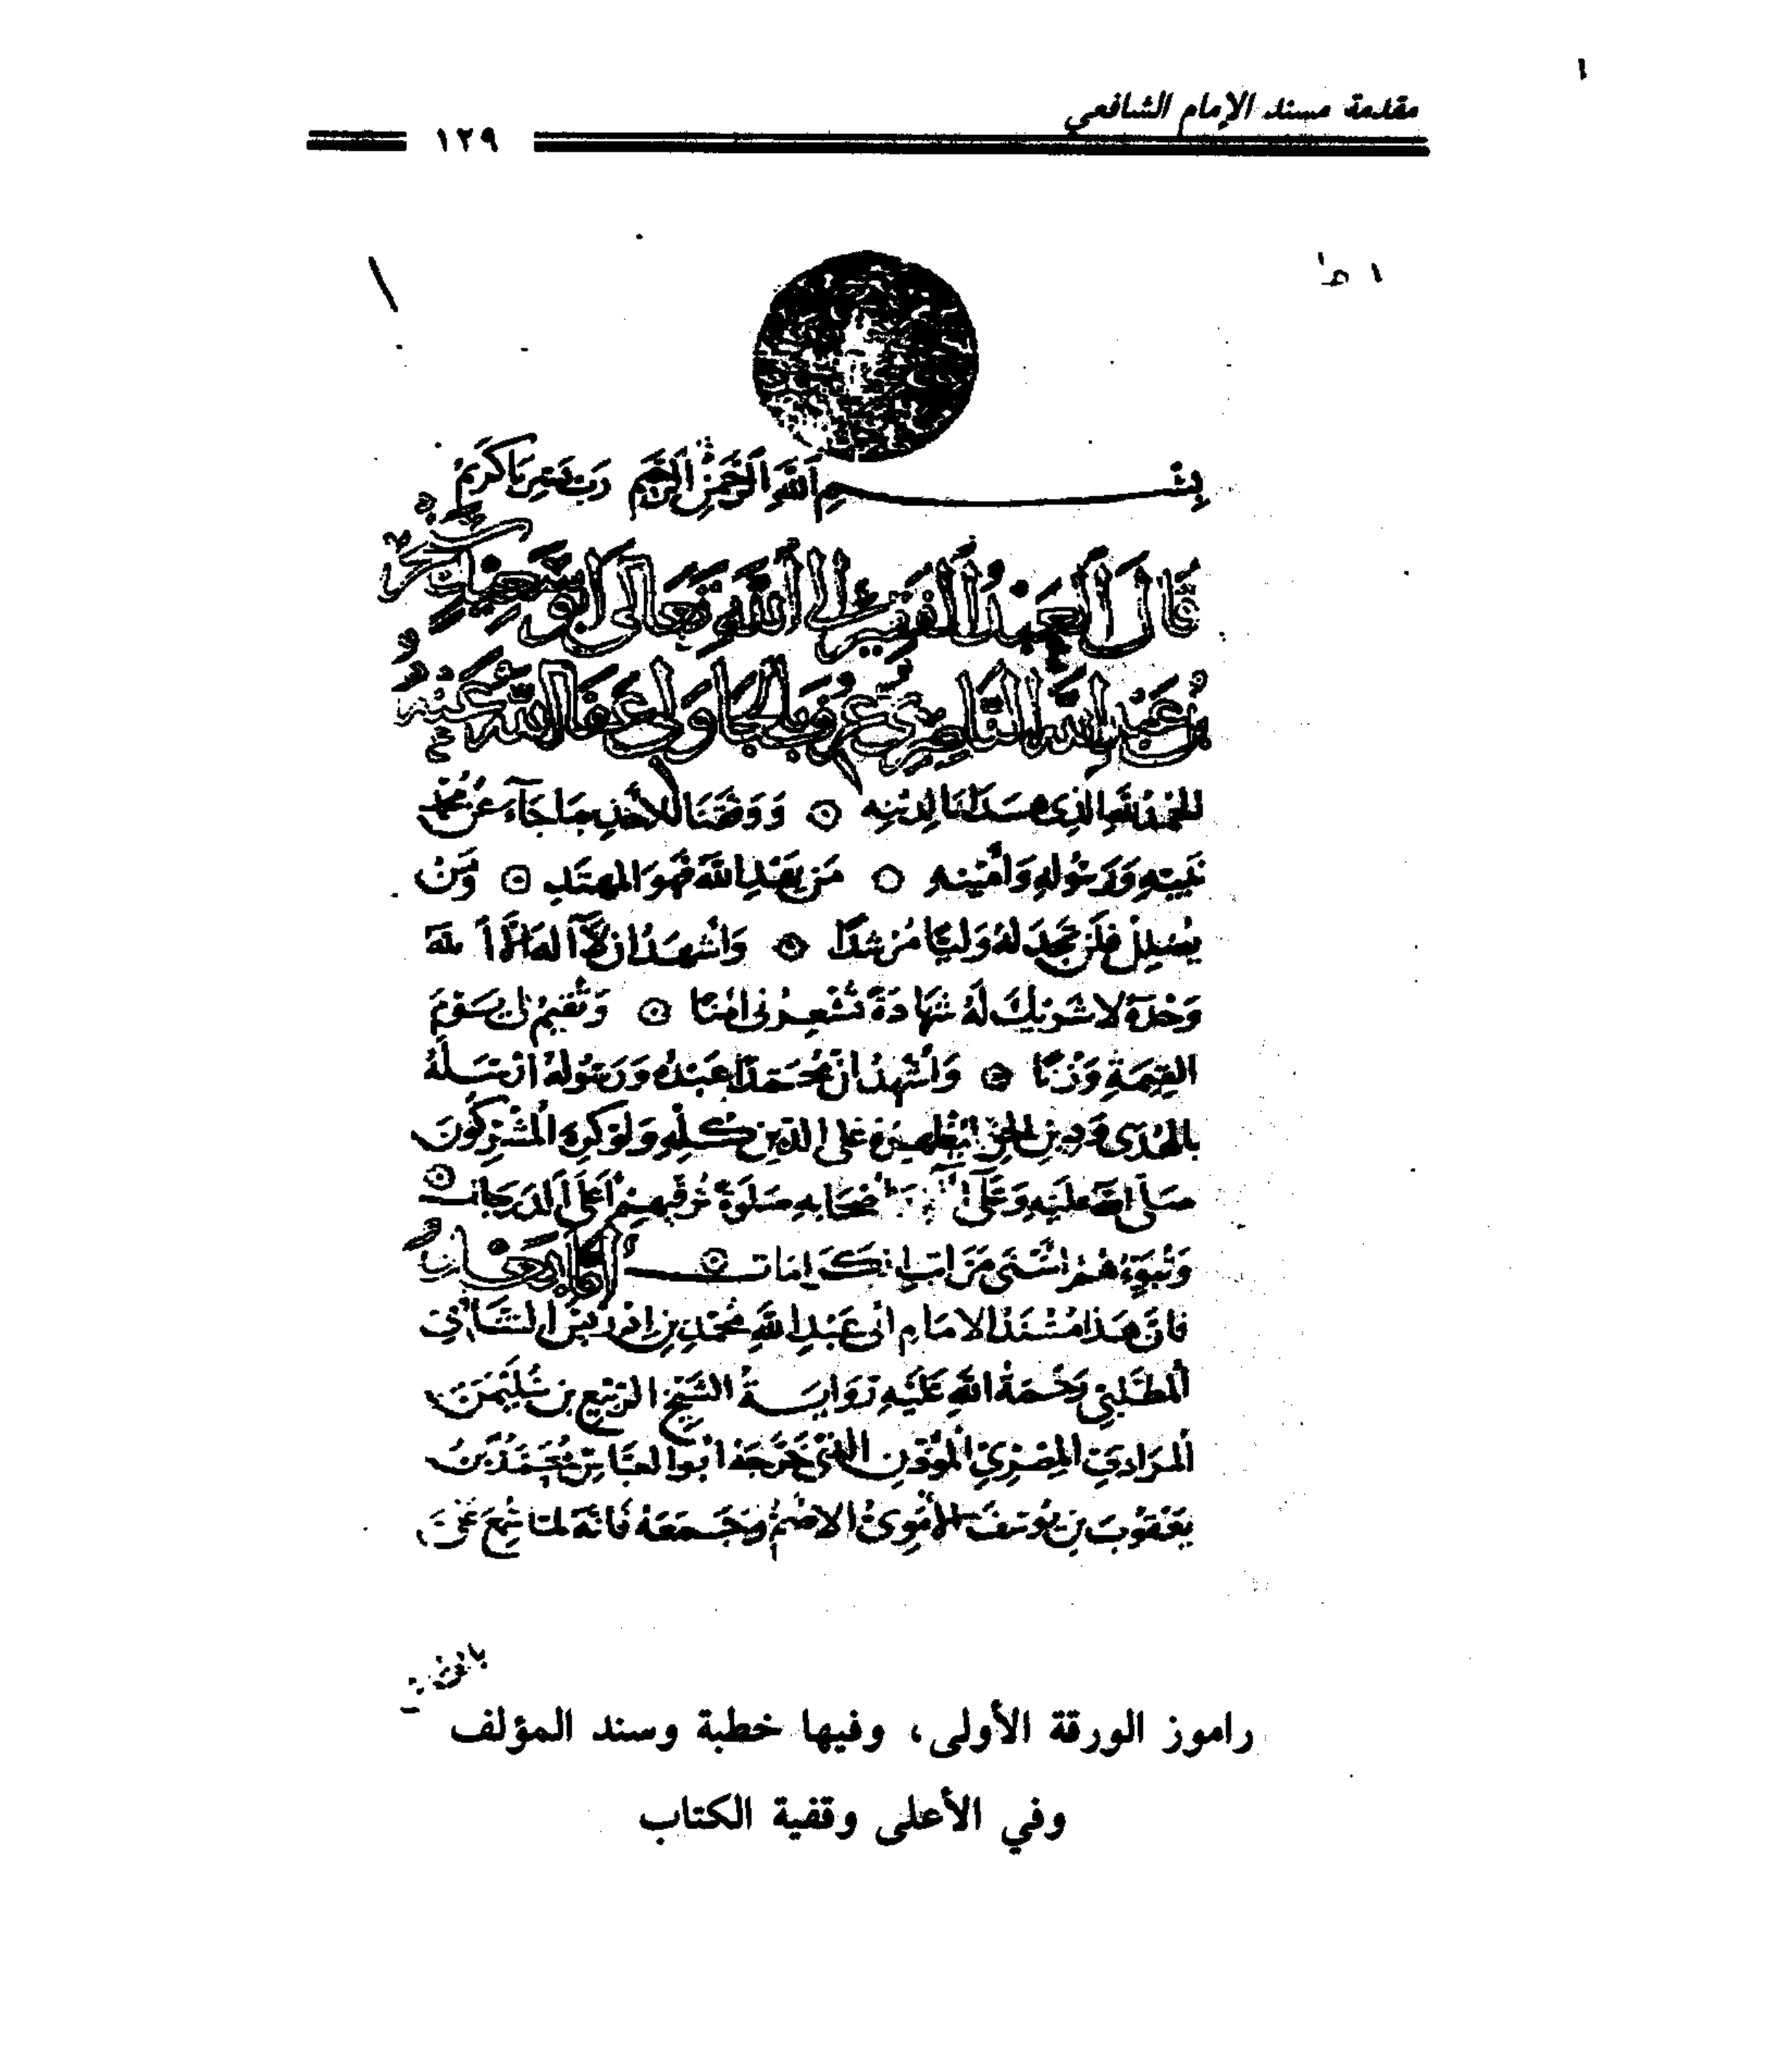 مقدمة مسند الإمام الشافعي
١٢٩
بِسْمِ اللَّهِ الرَّحْمَنِ الرَّحِيمِ رَبِّ يَسِّرْ يَا كَرِيمُ
قَالَ الْعَبْدُ الْفَقِيرُ إِلَى اللَّهِ تَعَالَى أَبُو سَعِيدٍ سَنْجَرُ
بْنُ عَبْدِ اللَّهِ النَّاصِرِيُّ عُرِفَ بِالْجَاوِلِي عَفَا اللَّهُ عَنْهُ
الحَمْدُ لِلَّهِ الَّذِي هَدَانَا لِدِينِهِ ۞ وَوَفَّقَنَا لِلأَخْذِ بِمَا جَآءَ عَنْ مُحَمَّدٍ
نَبِيِّهِ وَرَسُولِهِ وَأَمِينِهِ ۞ مَنْ يَهْدِ اللَّهُ فَهُوَ المُهْتَدِ ۞ وَمَنْ
يُضْلِلْ فَلَنْ تَجِدَ لَهُ وَلِيًّا مُرْشِدًا ۞ وَأَشْهَدُ أَنْ لَآ اِلَهَ اِلَّا اللهُ
وَحْدَهُ لا شَرِيكَ لَهُ شَهَادَةً تُشْعِرُنِي أَمْنًا ۞ وَتُقِيمُ لِي يَوْمَ
القِيمَةِ وَزْنًا ۞ وَأَشْهَدُ أَنَّ مُحَمَّدًا عَبْدُهُ وَرَسُولُهُ أَرْسَلَهُ
بِالهُدَى وَدِينِ الحَقِّ لِيُظْهِرَهُ عَلَى الدِّينِ كُلِّهِ وَلَوْ كَرِهَ المُشْرِكُونَ
صَلَّى اللهُ عَلَيْهِ وَعَلَى آلِهِ وَأَصْحَابِهِ صَلَوةً تُرَقِّيهِمْ أَعْلَى الدَّرَجَاتِ ۞
وَتُبَوِّئُهُمْ أَسْنَى مَرَاتِبِ الكَرَامَاتِ ۞ أَمَّا بَعْدُ
فَانَّ هَذَا مُسْنَدُ الامَامِ أَبِي عَبْدِ اللَّهِ مُحَمَّدِ بْنِ اِدْرِيسَ الشَّافِعِي
المُطَّلِبِي رَحْمَةُ اللَّهِ عَلَيْهِ رِوَايَةُ الشَّيْخِ الرَّبِيعِ بْنِ سُلَيْمَنَ
المُرَادِيِّ المِصْرِيِّ المُؤَذِّنِ الَّذِي خَرَّجَهُ أَبُو العَبَّاسِ مُحَمَّدُ بْنُ
يَعْقُوبَ بْنِ يُوسُفَ الأُمَوِيُّ الاصَمُّ وَجَمَعَهُ فَانَّهُ لمَّا سُمِعَ عَنْ
راموز الورقة الأولى، وفيها خطبة وسند المؤلف
وفي الأعلى وقفية الكتاب